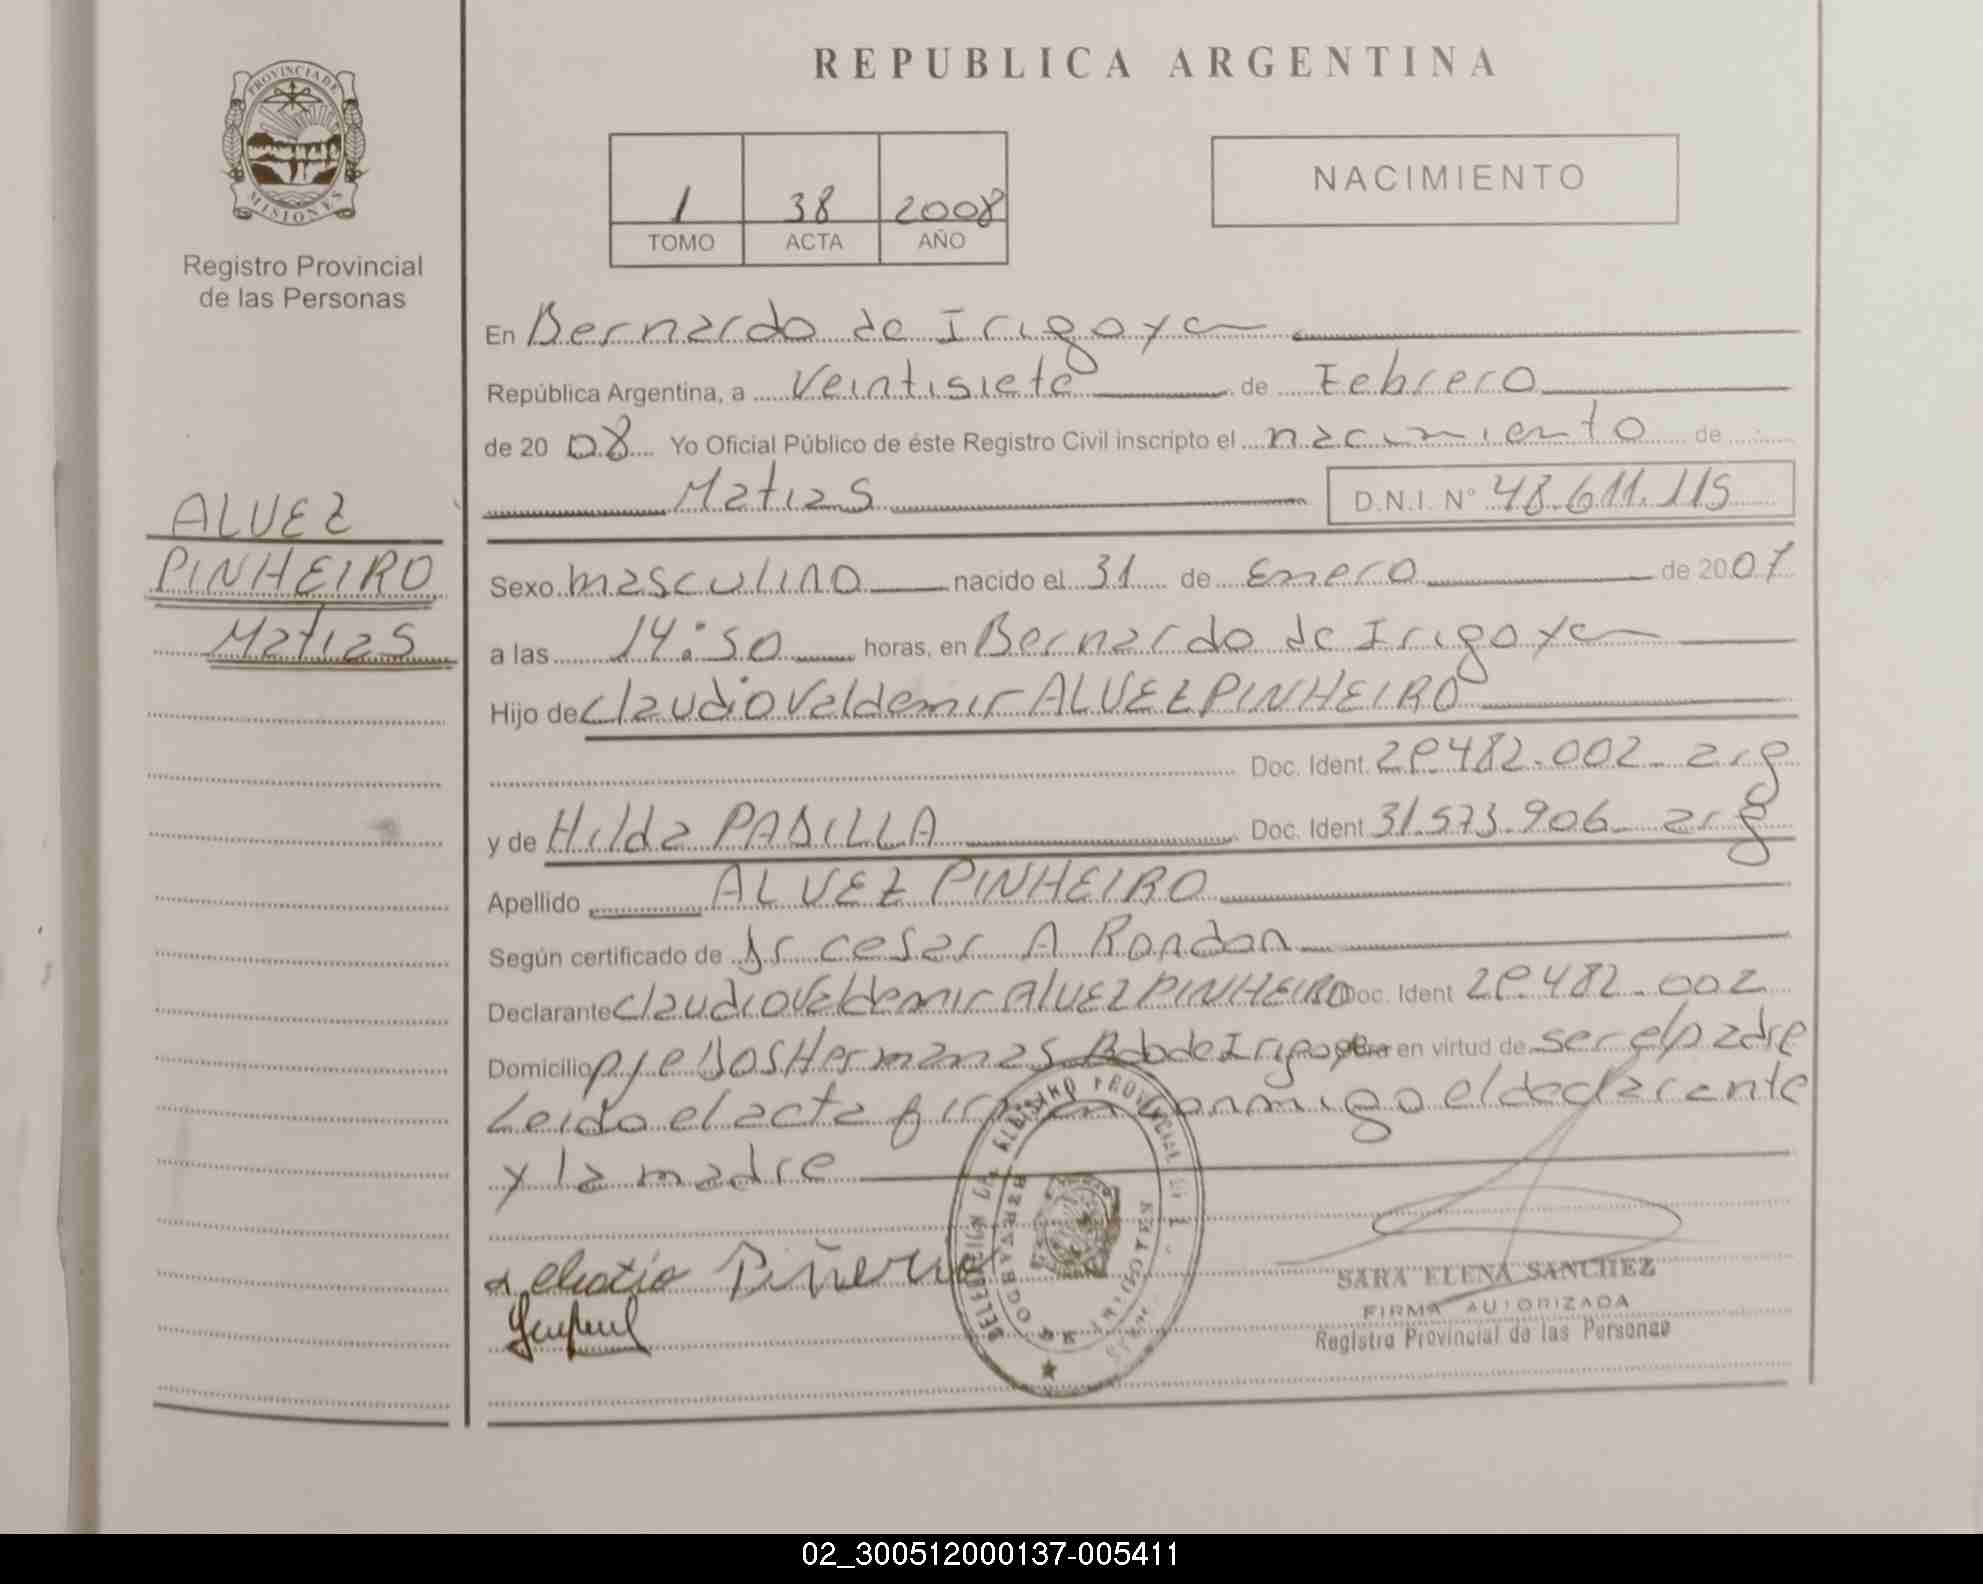 REPUBLICA ARGENTINA
PROVINCIA DE
MISIONES
Registro Provincial
de las Personas
1 38 2008
TOMO ACTA AÑO
NACIMIENTO
ALVEZ
PINHEIRO
Matias
En Bernardo de Irigoyen
República Argentina, a Veintisiete de Febrero
de 20 08 Yo Oficial Público de éste Registro Civil inscripto el nacimiento de
Matias D.N.I. N° 48.611.115
Sexo masculino nacido el 31 de Enero de 20 07
a las 14:50 horas, en Bernardo de Irigoyen
Hijo de Claudio Valdemir ALVEZ PINHEIRO
Doc. Ident. 29.482.002 - arg
y de Hilda PADILLA Doc. Ident 31.573.906 - arg
Apellido ALVEZ PINHEIRO
Según certificado de Dr Cesar A Rondan
Declarante Claudio Valdemir ALVEZ PINHEIRO Doc. Ident 29.482.002
Domicilio pje Dos Hermanas Bdo de Irigoyen en virtud de ser el padre
Leido el acta firman conmigo el declarante
y la madre
Piñeruo
SARA ELENA SANCHEZ
FIRMA AUTORIZADA
Registro Provincial de las Personas
02_300512000137-005411